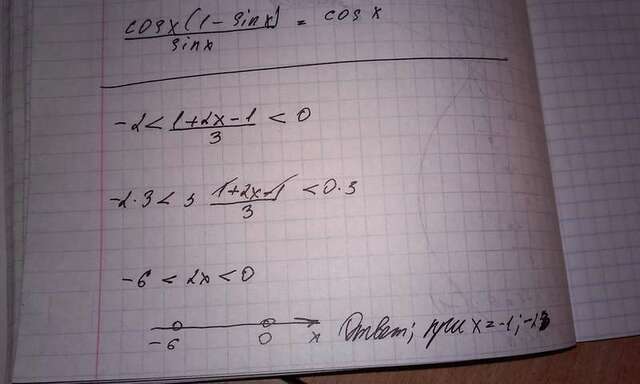 cosx(1-sinx)/sinx = cosx
-2 < (1+2x-1)/3 < 0
-2·3 < 3 (1+2x-1)/3 < 0·3
-6 < 2x < 0
-6 0 x Ответ; при x = -1; -1,